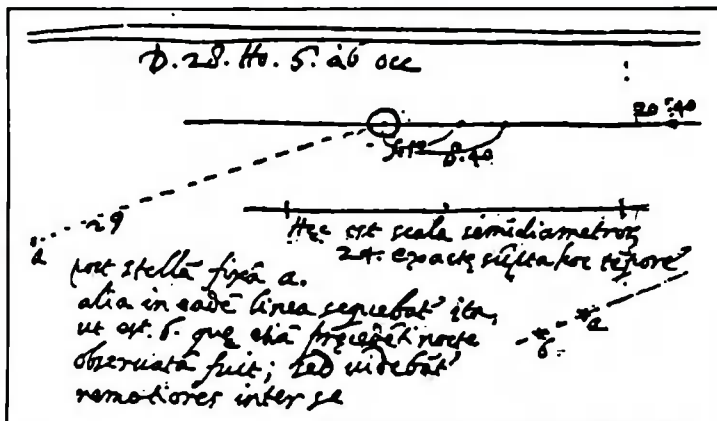 D. 28. Ho. 5. ab occ
20.40
8.40
29
a
Hęc est scala semidiametroꝝ
24. exactę sūpta hoc tēpore
post stellā fixā a.
alia in eadē linea sequebat' ita,
ut est. b. quę etiā pręcedēti nocte
observata fuit; sed videbāt'
remotiores inter se
a
b